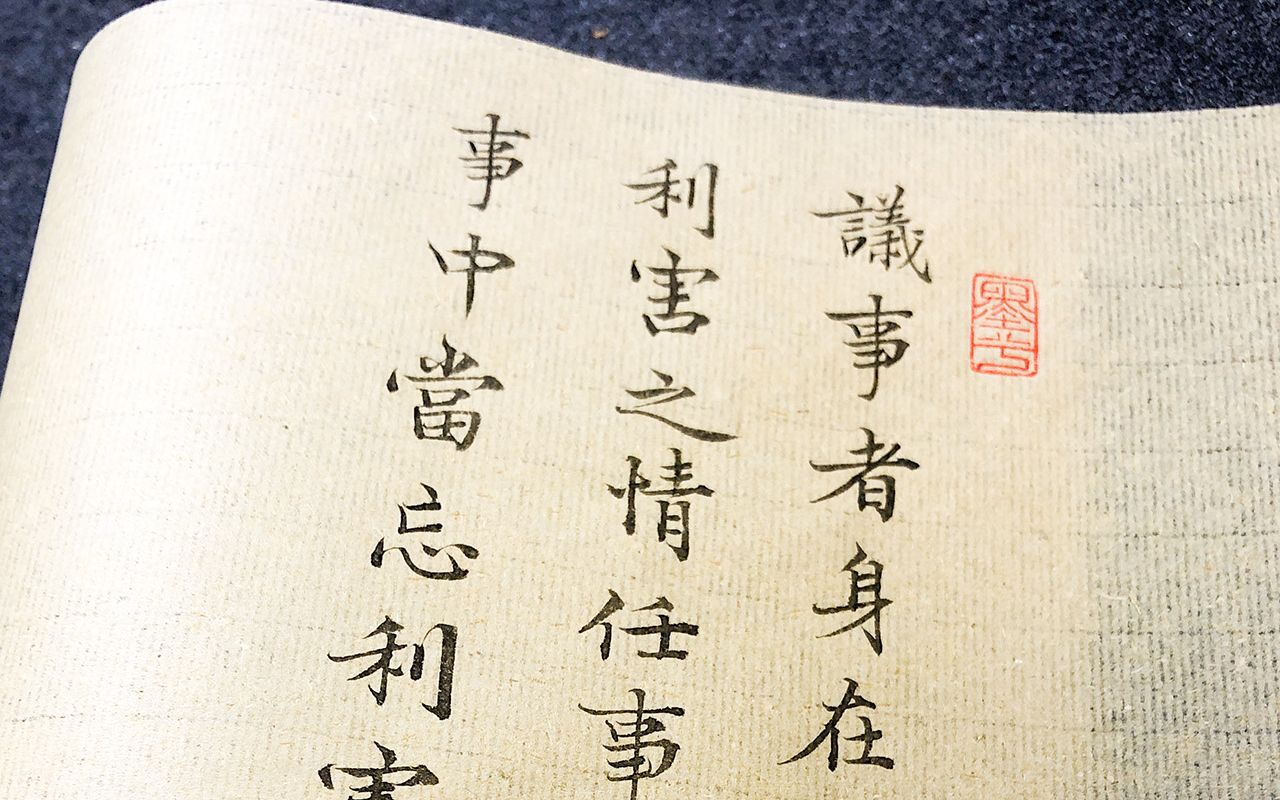 議事者身在
利害之情任事
事中當忘利害